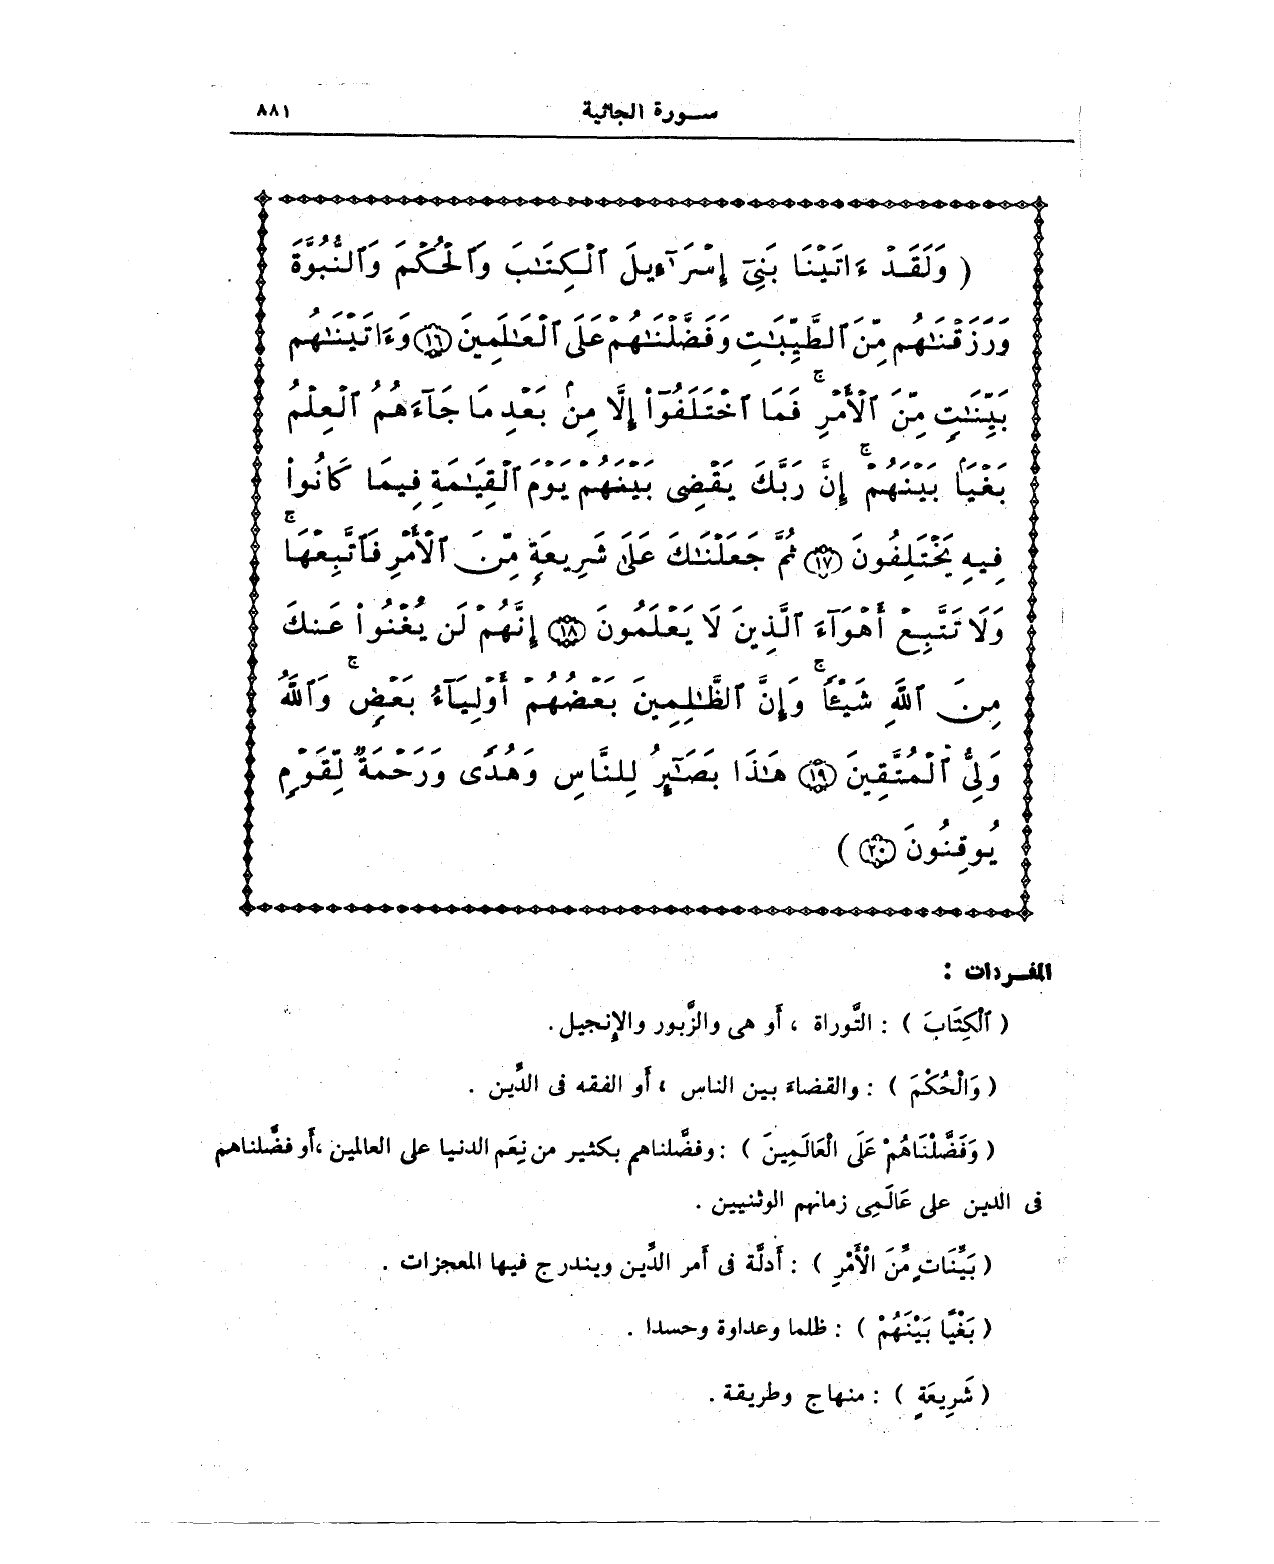 سـورة الجاثية ٨٨١
( وَلَقَدْ ءَاتَيْنَا بَنِىٓ إِسْرَٰٓءِيلَ ٱلْكِتَٰبَ وَٱلْحُكْمَ وَٱلنُّبُوَّةَ
وَرَزَقْنَٰهُم مِّنَ ٱلطَّيِّبَٰتِ وَفَضَّلْنَٰهُمْ عَلَى ٱلْعَٰلَمِينَ ⑯ وَءَاتَيْنَٰهُم
بَيِّنَٰتٍ مِّنَ ٱلْأَمْرِ ۖ فَمَا ٱخْتَلَفُوٓا۟ إِلَّا مِنۢ بَعْدِ مَا جَآءَهُمُ ٱلْعِلْمُ
بَغْيًۢا بَيْنَهُمْ ۚ إِنَّ رَبَّكَ يَقْضِى بَيْنَهُمْ يَوْمَ ٱلْقِيَٰمَةِ فِيمَا كَانُوا۟
فِيهِ يَخْتَلِفُونَ ⑰ ثُمَّ جَعَلْنَٰكَ عَلَىٰ شَرِيعَةٍ مِّنَ ٱلْأَمْرِ فَٱتَّبِعْهَا ۚ
وَلَا تَتَّبِعْ أَهْوَآءَ ٱلَّذِينَ لَا يَعْلَمُونَ ⑱ إِنَّهُمْ لَن يُغْنُوا۟ عَنكَ
مِنَ ٱللَّهِ شَيْـًٔا ۚ وَإِنَّ ٱلظَّٰلِمِينَ بَعْضُهُمْ أَوْلِيَآءُ بَعْضٍ ۚ وَٱللَّهُ
وَلِىُّ ٱلْمُتَّقِينَ ⑲ هَٰذَا بَصَٰٓئِرُ لِلنَّاسِ وَهُدًى وَرَحْمَةٌ لِّقَوْمٍ
يُوقِنُونَ ⑳ )
المفـردات :
( ٱلْكِتَابَ ) : التَّوراة ، أَو هى والزَّبور والإِنجيل.
( وَالْحُكْمَ ) : والقضاءَ بين الناس ، أَو الفقه فى الدِّين .
( وَفَضَّلْنَاهُمْ عَلَى الْعَالَمِينَ ) : وفضَّلناهم بكثير من نِعَم الدنيا على العالمين ،أَو فضَّلناهم
فى الدين على عَالَمِى زمانهم الوثنيين .
( بَيِّنَاتٍ مِّنَ الْأَمْرِ ) : أَدلَّة فى أَمر الدِّين ويندرج فيها المعجزات .
( بَغْيًا بَيْنَهُمْ ) : ظلما وعداوة وحسدا .
( شَرِيعَةٍ ) : منهاج وطريقة .